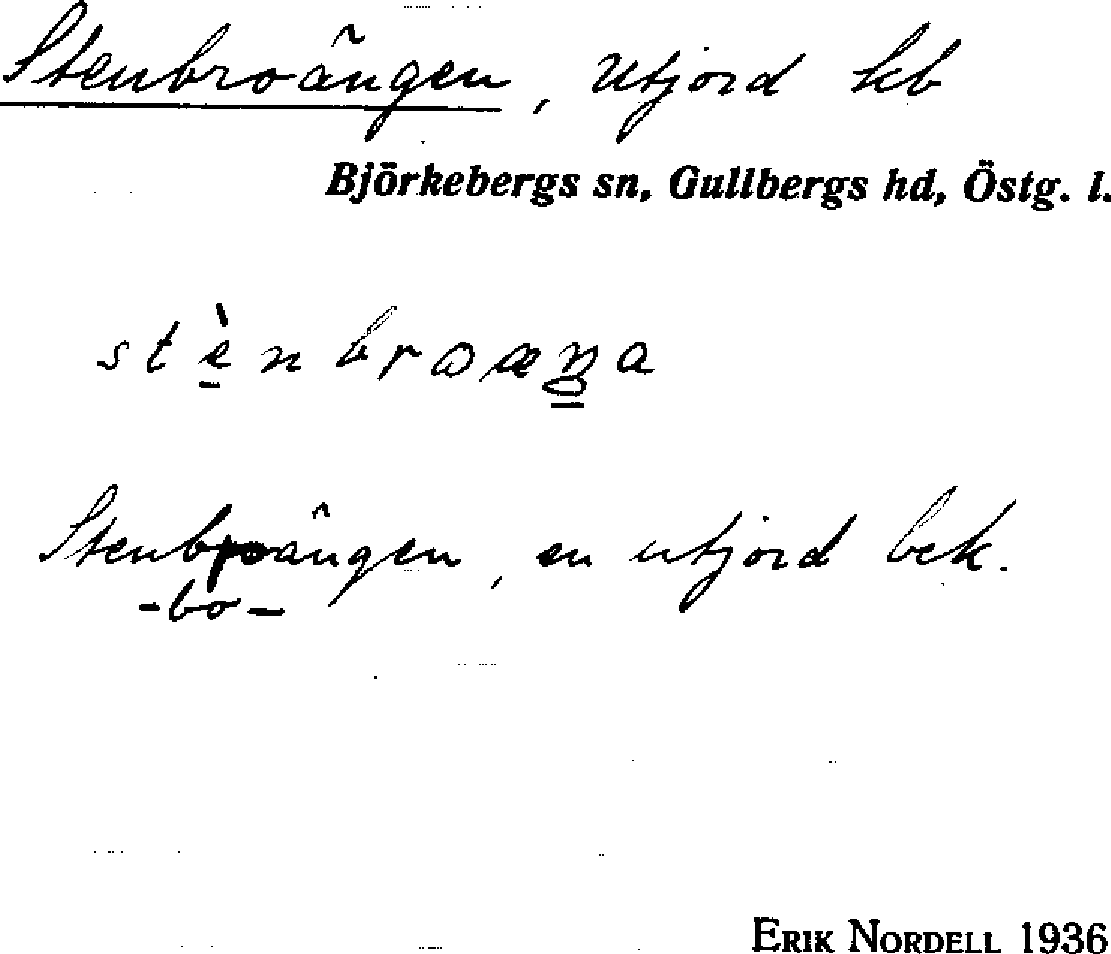 Stenbroängen, Utjord kb
Björkebergs sn, Gullbergs hd, Östg. l.
stènbroæŋa
Stenbroängen, en utjord bek.
-bo-
ERIK NORDELL 1936